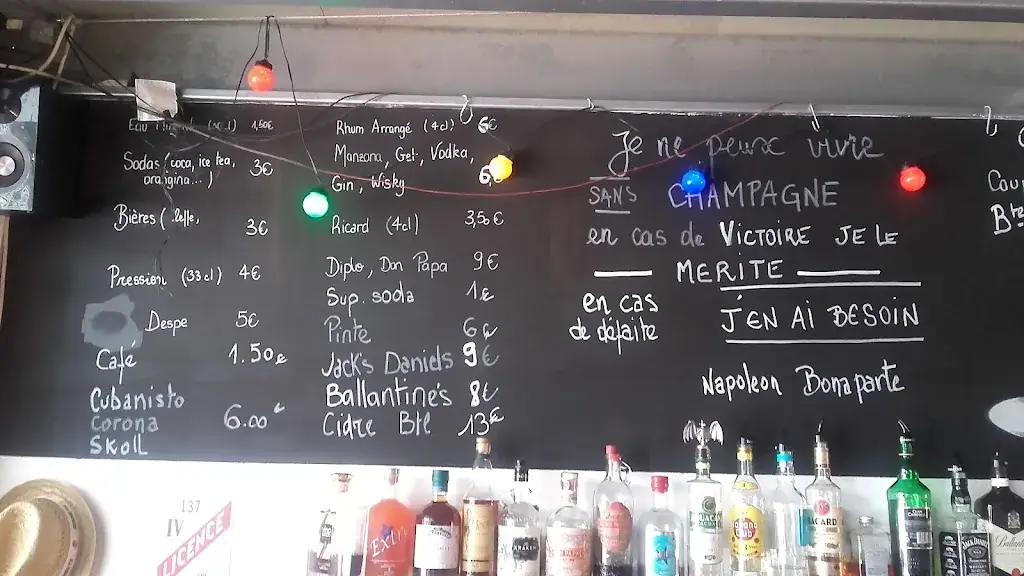 Rhum Arrangé (4cl) 6€
Manzana, Get, Vodka,
Gin, Wisky 6,
Ricard (4cl) 3,50€
Diplo, Don Papa 9€
Sup. soda 1€
Pinte 6€
Jack's Daniels 9€
Ballantine's 8€
Cidre Bte 13€
Eau (50cl) 1,50€
Sodas (coca, ice tea, 3€
orangina...)
Bières ( leffe, 3€
Pression (33cl) 4€
Despe 5€
Café 1.50€
Cubanisto
Corona 6.00€
SKOLL
Je ne peux vivre
SANS CHAMPAGNE
en cas de VICTOIRE JE LE
MERITE
en cas
de défaite
J'EN AI BESOIN
Napoleon Bonaparte
Cou
Bte
137
IV
LICENCE
Extra
KRAKEN
Havana
Club
BACARDI
JACK DANIEL'S
Ballantine's